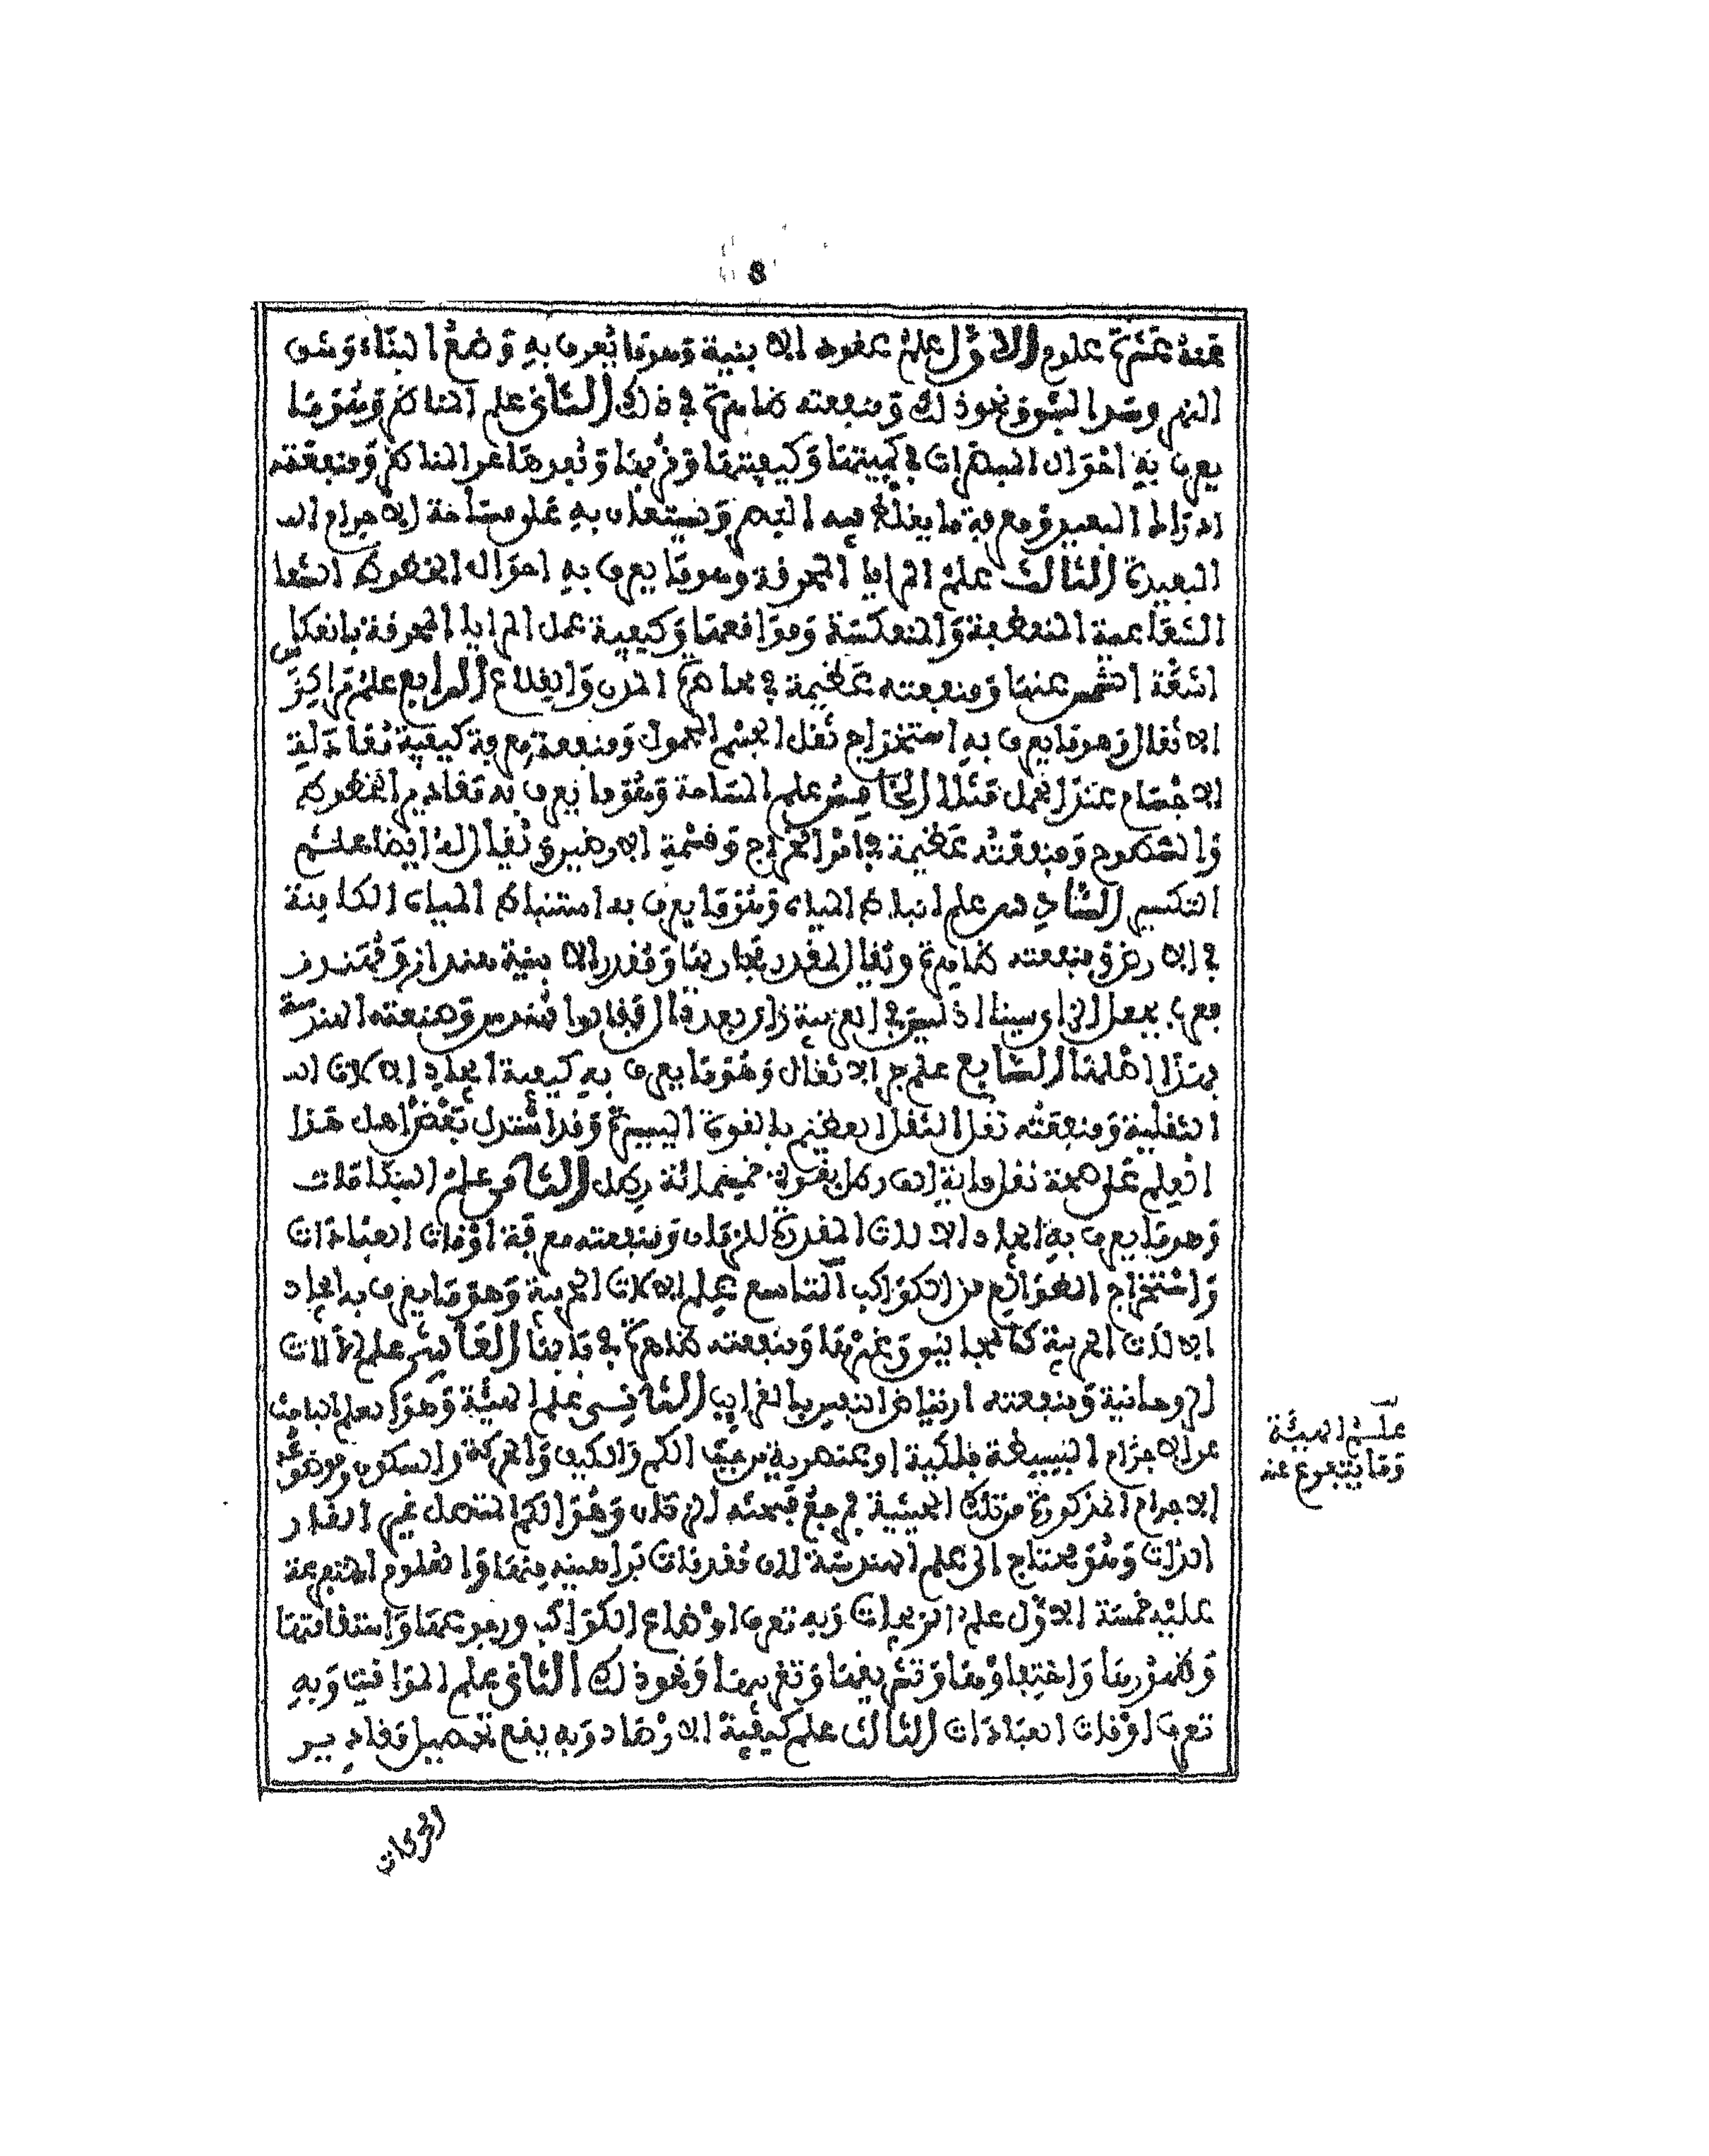 8
عنه عشرة علوم الاول علم عقود الابنية وهو ما يعرف به وضع البناء وشق
النهر وسد البثوق ونحو ذلك ومنفعته ظاهرة في ذلك الثاني علم المناظر وهو ما
يعرف به احوال المبصرات في كميتها وكيفيتها وقربها وبعدها عن المناظر ومنفعته
ادراك البعيد ومعرفة ما يغلط فيه البصر ويستعان به على مساحة الاجرام ال
البعيدة الثالث علم المرايا المحرفة وهو ما يعرف به احوال الخطوط الشعا
الشعاعية المنعطفة والمنعكسة ومواقعها وكيفية عمل المرايا المحرفة بانعكاس
اشعة الشمس عنها ومنفعته عظيمة في محاصرة المدن والقلاع الرابع علم مراكز
الاثقال وهو ما يعرف به استخراج ثقل الجسم المحمول ومنفعته معرفة كيفية معادلة
الاجسام عند الحمل مثلا الخامس علم المساحة وهو ما يعرف به مقادير الخطوط
والسطوح ومنفعته عظيمة في امر الخراج وقسمة الارضين ويقال له ايضا علم
التكسير السادس علم انباط المياه وهو ما يعرف به استنباط المياه الكامنة
في الارض ومنفعته ظاهرة ويقال لمقدر مجاريها ومقدر الابنية مهندز ومهندس
معرب بجعل الزاي سينا اذ ليس في العربية زاي بعد دال فقالوا مهندس وصنعته الهندسة
بهذا اهلها السابع علم جر الاثقال وهو ما يعرف به كيفية ايجاد الآلات ال
الثقيلة ومنفعته نقل الثقل العظيم بالقوة اليسيرة وقد استدل بعض اهل هذا
العلم على صحة نقل مائة الف رطل بقوة خمسمائة رطل الثامن علم البنكامات
وهو ما يعرف به ايجاد الآلات المقدرة للزمان ومنفعته معرفة اوقات العبادات
واستخراج الطوالع من الكواكب التاسع علم الآلات الحربية وهو ما يعرف به ايجاد
الآلات الحربية كالمجانيق وغيرها ومنفعته ظاهرة في بابها العاشر علم الآلات
الروحانية ومنفعته ارتياض النفس بالغرايب الثامن علم الهيئة وهو العلم الباحث
عن الاجرام البسيطة فلكية او عنصرية من حيث الكم والكيف والحركة والسكون وموضوعه
الاجرام المذكورة من تلك الحيثية قسمته الزمان وهو الكم المتصل غير القار
الذات وهو محتاج الى علم الهندسة لان مقدمات براهينه منها والعلوم المتفرعة
عليه خمسة الاول علم الزيجات وبه تعرف اوضاع الكواكب ورجوعها واستقامتها
وظهورها واختفاؤها وتشريقها وتغريبها ونحو ذلك الثاني علم المواقيت وبه
تعرف اوقات العبادات الثالث علم كيفية الارصاد وبه يقع تحصيل مقادير
علم الهيئة
وما يتفرع عنه
الحركات